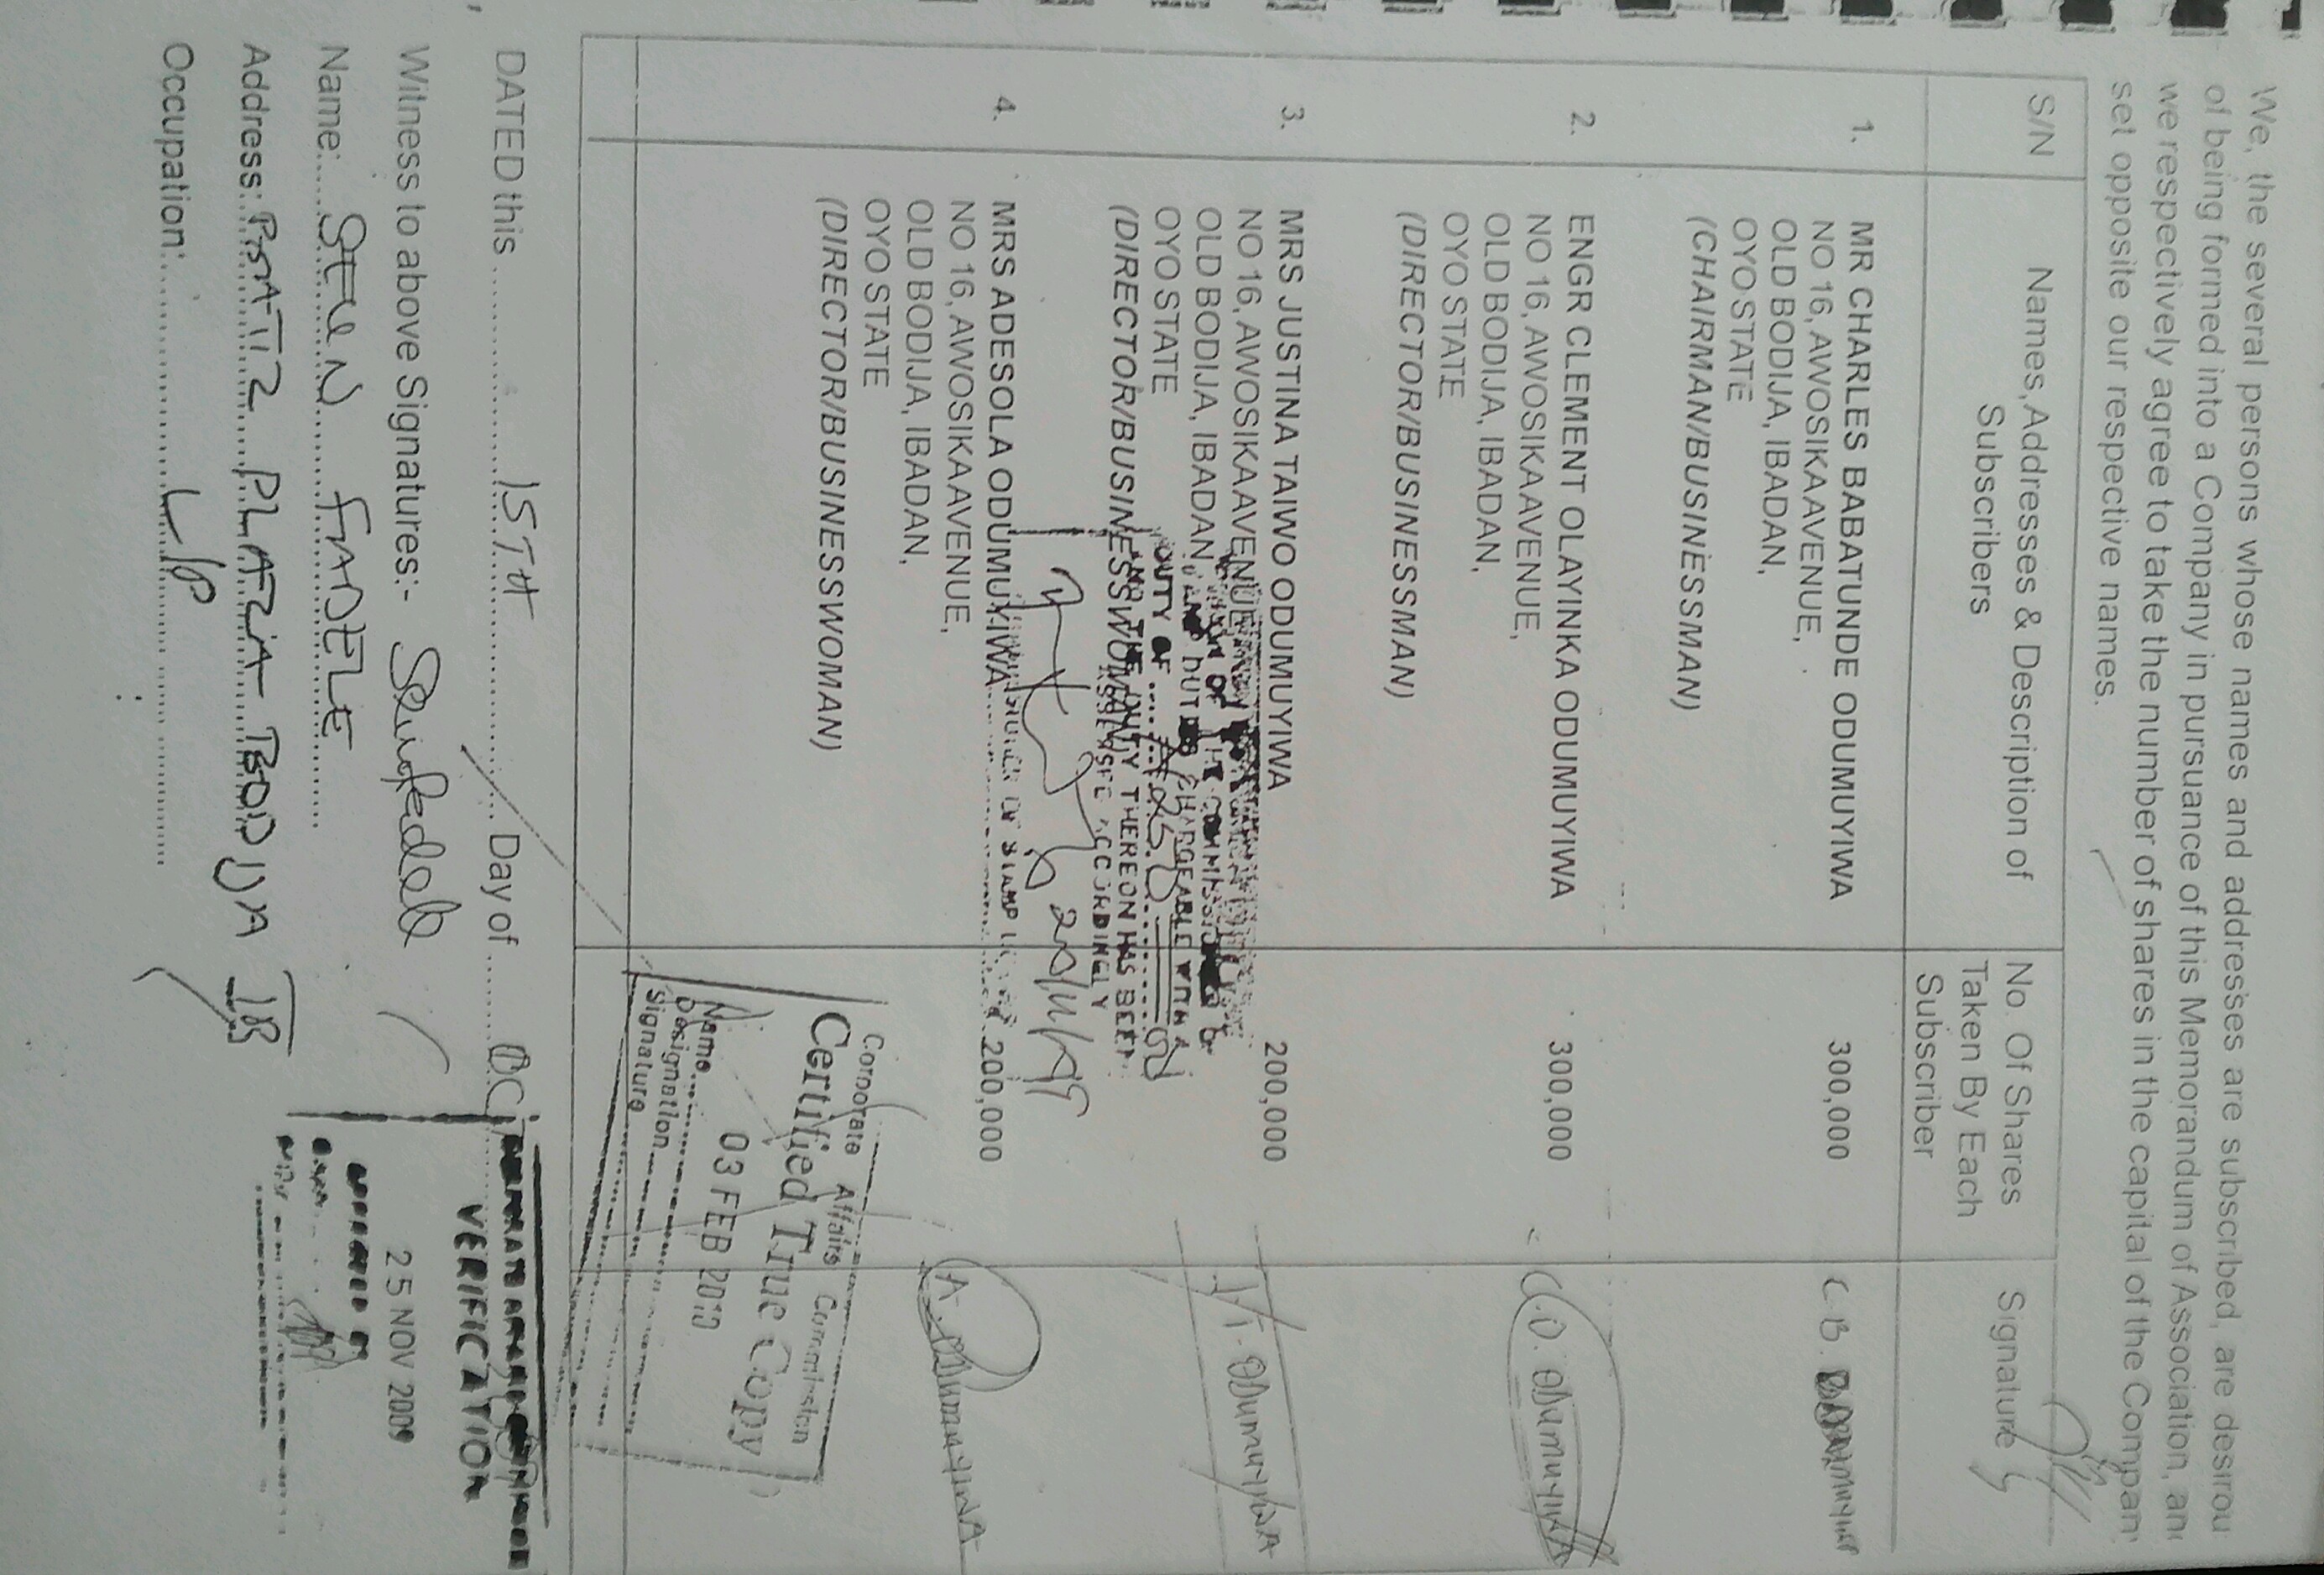 We, the several persons whose names and addresses are subscribed, are desirou
of being formed into a Company in pursuance of this Memorandum of Association, an
we respectively agree to take the number of shares in the capital of the Compan
set opposite our respective names.
S/N
Names, Addresses & Description of
Subscribers
No. Of Shares
Taken By Each
Subscriber
Signature
1.
MR CHARLES BABATUNDE ODUMUYIWA
NO 16, AWOSIKA AVENUE,
OLD BODIJA, IBADAN,
OYO STATE
(CHAIRMAN/BUSINESSMAN)
300,000
C.B.
2.
ENGR CLEMENT OLAYINKA ODUMUYIWA
NO 16, AWOSIKA AVENUE,
OLD BODIJA, IBADAN,
OYO STATE
(DIRECTOR/BUSINESSMAN)
300,000
C.O. ODUMUYIWA
3.
MRS JUSTINA TAIWO ODUMUYIWA
NO 16, AWOSIKA AVENUE,
OLD BODIJA, IBADAN,
OYO STATE
(DIRECTOR/BUSINESSWOMAN)
200,000
ODUMUYIWA
DUTY OF
THE DUTY THEREON HAS BEEN
ACCORDINGLY
4.
MRS ADESOLA ODUMUYIWA
NO 16, AWOSIKA AVENUE,
OLD BODIJA, IBADAN,
OYO STATE
(DIRECTOR/BUSINESSWOMAN)
200,000
A. ODUMUYIWA
Corporate Affairs Commission
Certified True Copy
03 FEB 2010
Name
Designation
Signature
DATED this 15TH Day of OCT
VERIFICATION
25 NOV 2009
Witness to above Signatures:-
Name: SEUN FADELE
Address: PLAZA BODIJA IB
Occupation: L/P